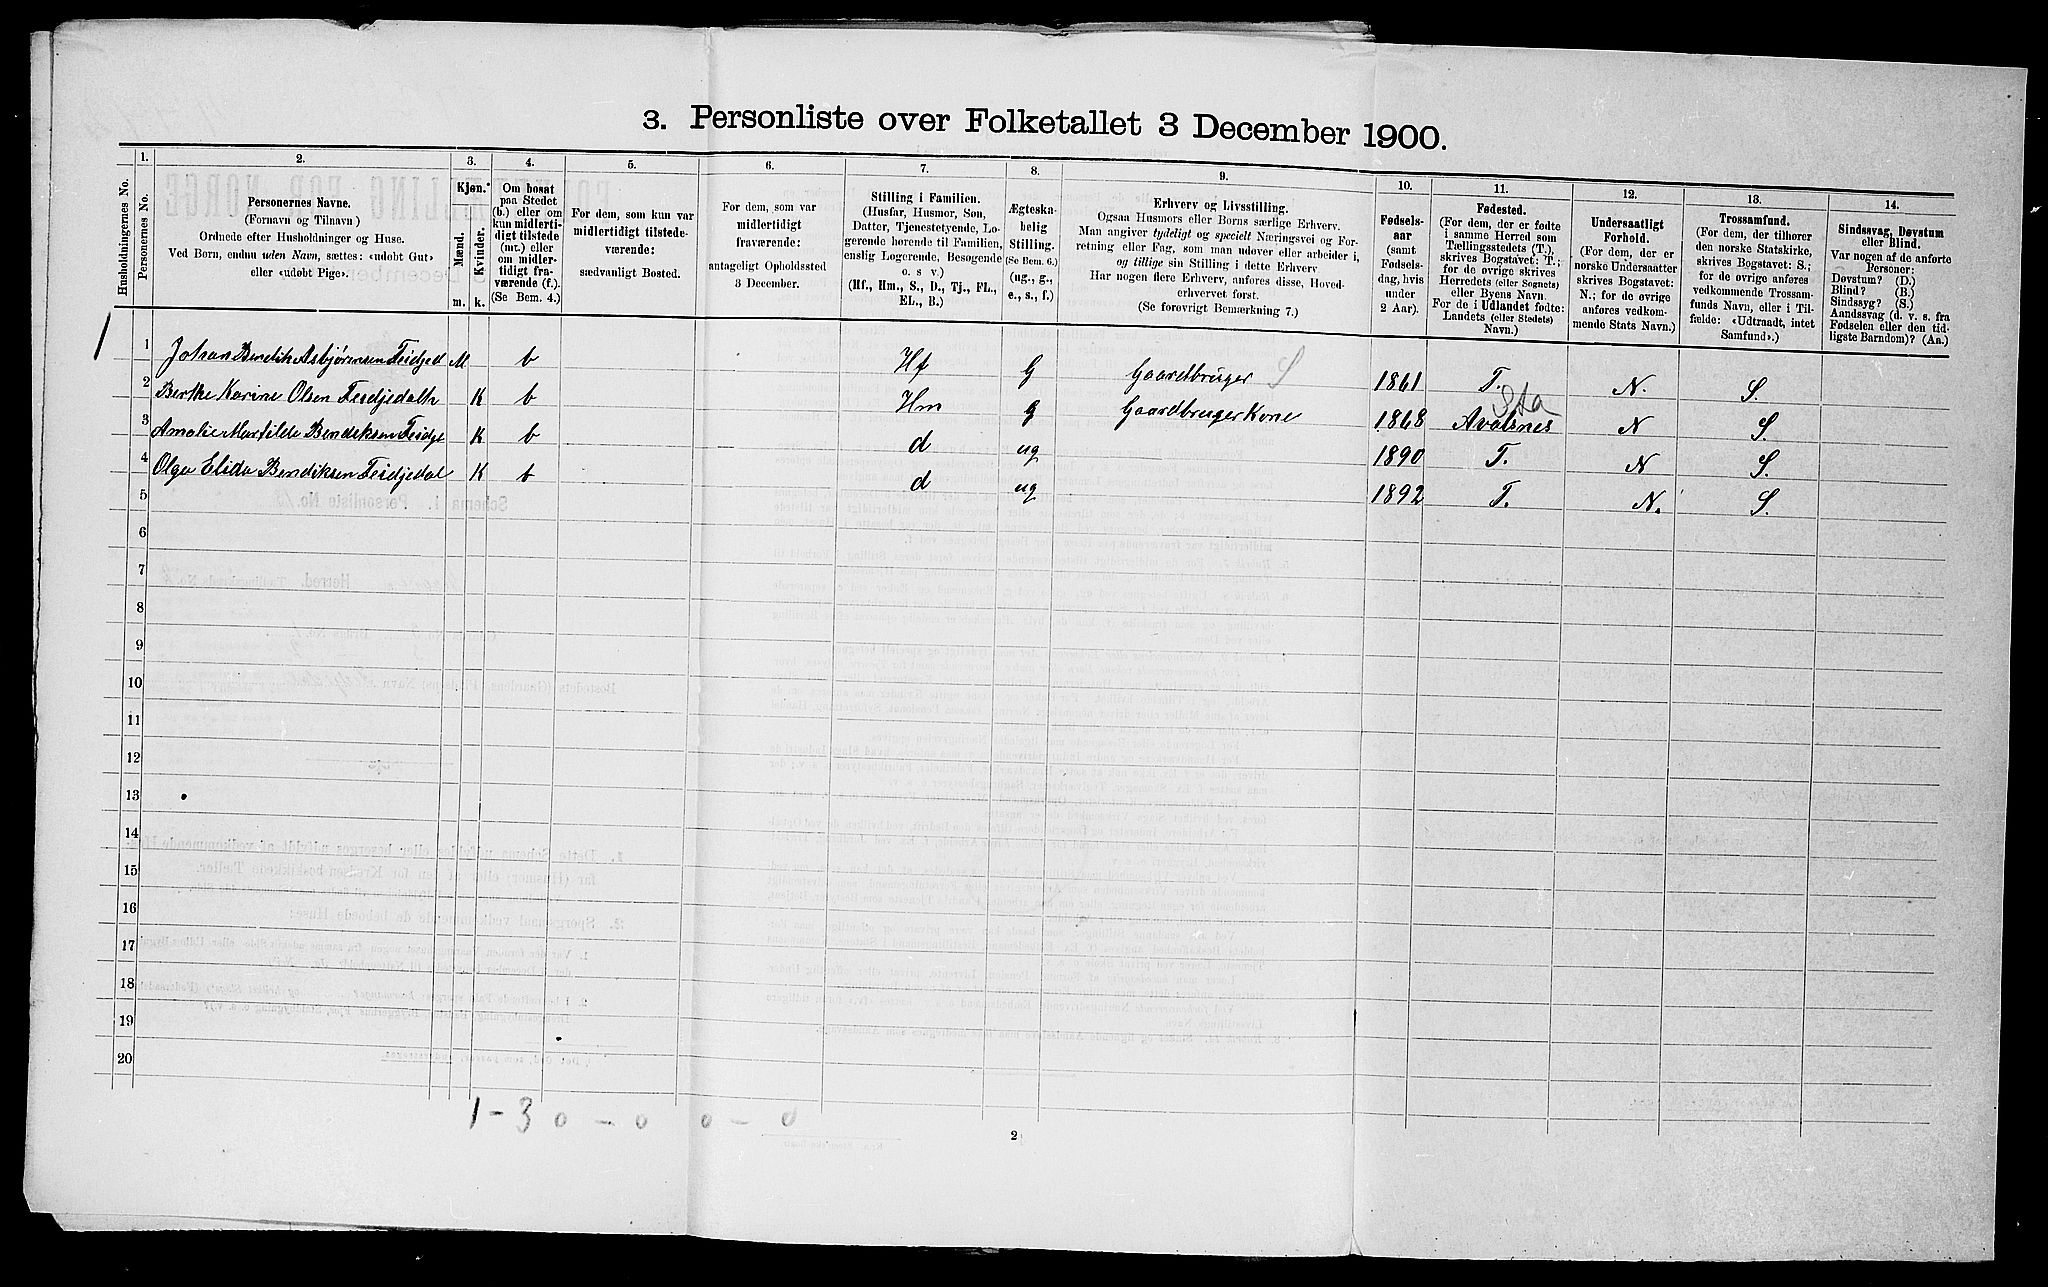 3. Personliste over Folketallet 3 December 1900.
Husholdningernes No.
1.
Personernes No.
2.
Personernes Navne.
(Fornavn og Tilnavn)
Ordnede efter Husholdninger og Huse.
Ved Børn, endnu uden Navn, sættes: «udøbt Gut»
eller «udøbt Pige».
3.
Kjøn.
Mænd.
Kvinder.
m. k.
4.
Om bosat
paa Stedet
(b.) eller om
kun midlerti-
digt tilstede
(mt.) eller
om midler-
tidigt fra-
værende (f.).
(Se Bem. 4.)
5.
For dem, som kun var
midlertidigt tilstede-
værende:
sædvanligt Bosted.
6.
For dem, som var
midlertidigt
fraværende:
antageligt Opholdssted
3 December.
7.
Stilling i Familien.
(Husfar, Husmor, Søn,
Datter, Tjenestetyende, Lo-
gerende hørende til Familien,
enslig Logerende, Besøgende
o. s v.)
(Hf., Hm., S., D., Tj., FL.,
EL., B.)
8.
Ægteska-
belig
Stilling.
(Se Bem. 6.)
(ug., g.,
e., s., f.)
9.
Erhverv og Livsstilling.
Ogsaa Husmors eller Børns særlige Erhverv.
Man angiver tydeligt og specielt Næringsvei og For-
retning eller Fag, som man udøver eller arbeider i,
og tillige sin Stilling i dette Erhverv
Har nogen flere Erhverv, anføres disse, Hoved-
erhvervet først.
(Se forøvrigt Bemærkning 7.)
10.
Fødsels-
aar
(samt
Fødsels-
dag, hvis
under
2 Aar).
11.
Fødested.
(For dem, der er fødte
i samme Herred som
Tællingsstedets (T.),
skrives Bogstavet: T.;
for de øvrige skrives
Herredets (eller Sognets)
eller Byens Navn.
For de i Udlandet fødte:
Landets (eller Stedets)
Navn.)
12.
Undersaatligt
Forhold.
(For dem, der er
norske Undersaatter
skrives Bogstavet:
N.; for de øvrige
anføres vedkom-
mende Stats Navn.)
13.
Trossamfund.
(For dem, der tilhører
den norske Statskirke,
skrives Bogstavet: S.;
for de øvrige anføres
vedkommende Trossam-
funds Navn, eller i Til-
fælde: «Udtraadt, intet
Samfund».)
14.
Sindssvag, Døvstum
eller Blind.
Var nogen af de anførte
Personer:
Døvstum? (D.)
Blind? (B.)
Sindssyg? (S.)
Aandssvag (d. v. s. fra
Fødselen eller den tid-
ligste Barndom)? (Aa.)
1 1 Johan Bendik Asbjørnsen Feidjed M b Hf G Gaardbruger S 1861 T. N. S.
2 Berthe Karine Olsen Feidjedalh K b Hm g Gaardbruger Kone 1868 Avalsnes N S.
3 Amalie Martilde Bendiksen Feidje K b d ug 1890 T. N S.
4 Olga Elida Bendiksen Feidjedal K b d ug 1892 T. N. S.
5
6
7
8
9
10
11
12
13
14
15
16
17
18
19
20
1 - 3 0 - 0 0 - 0
2